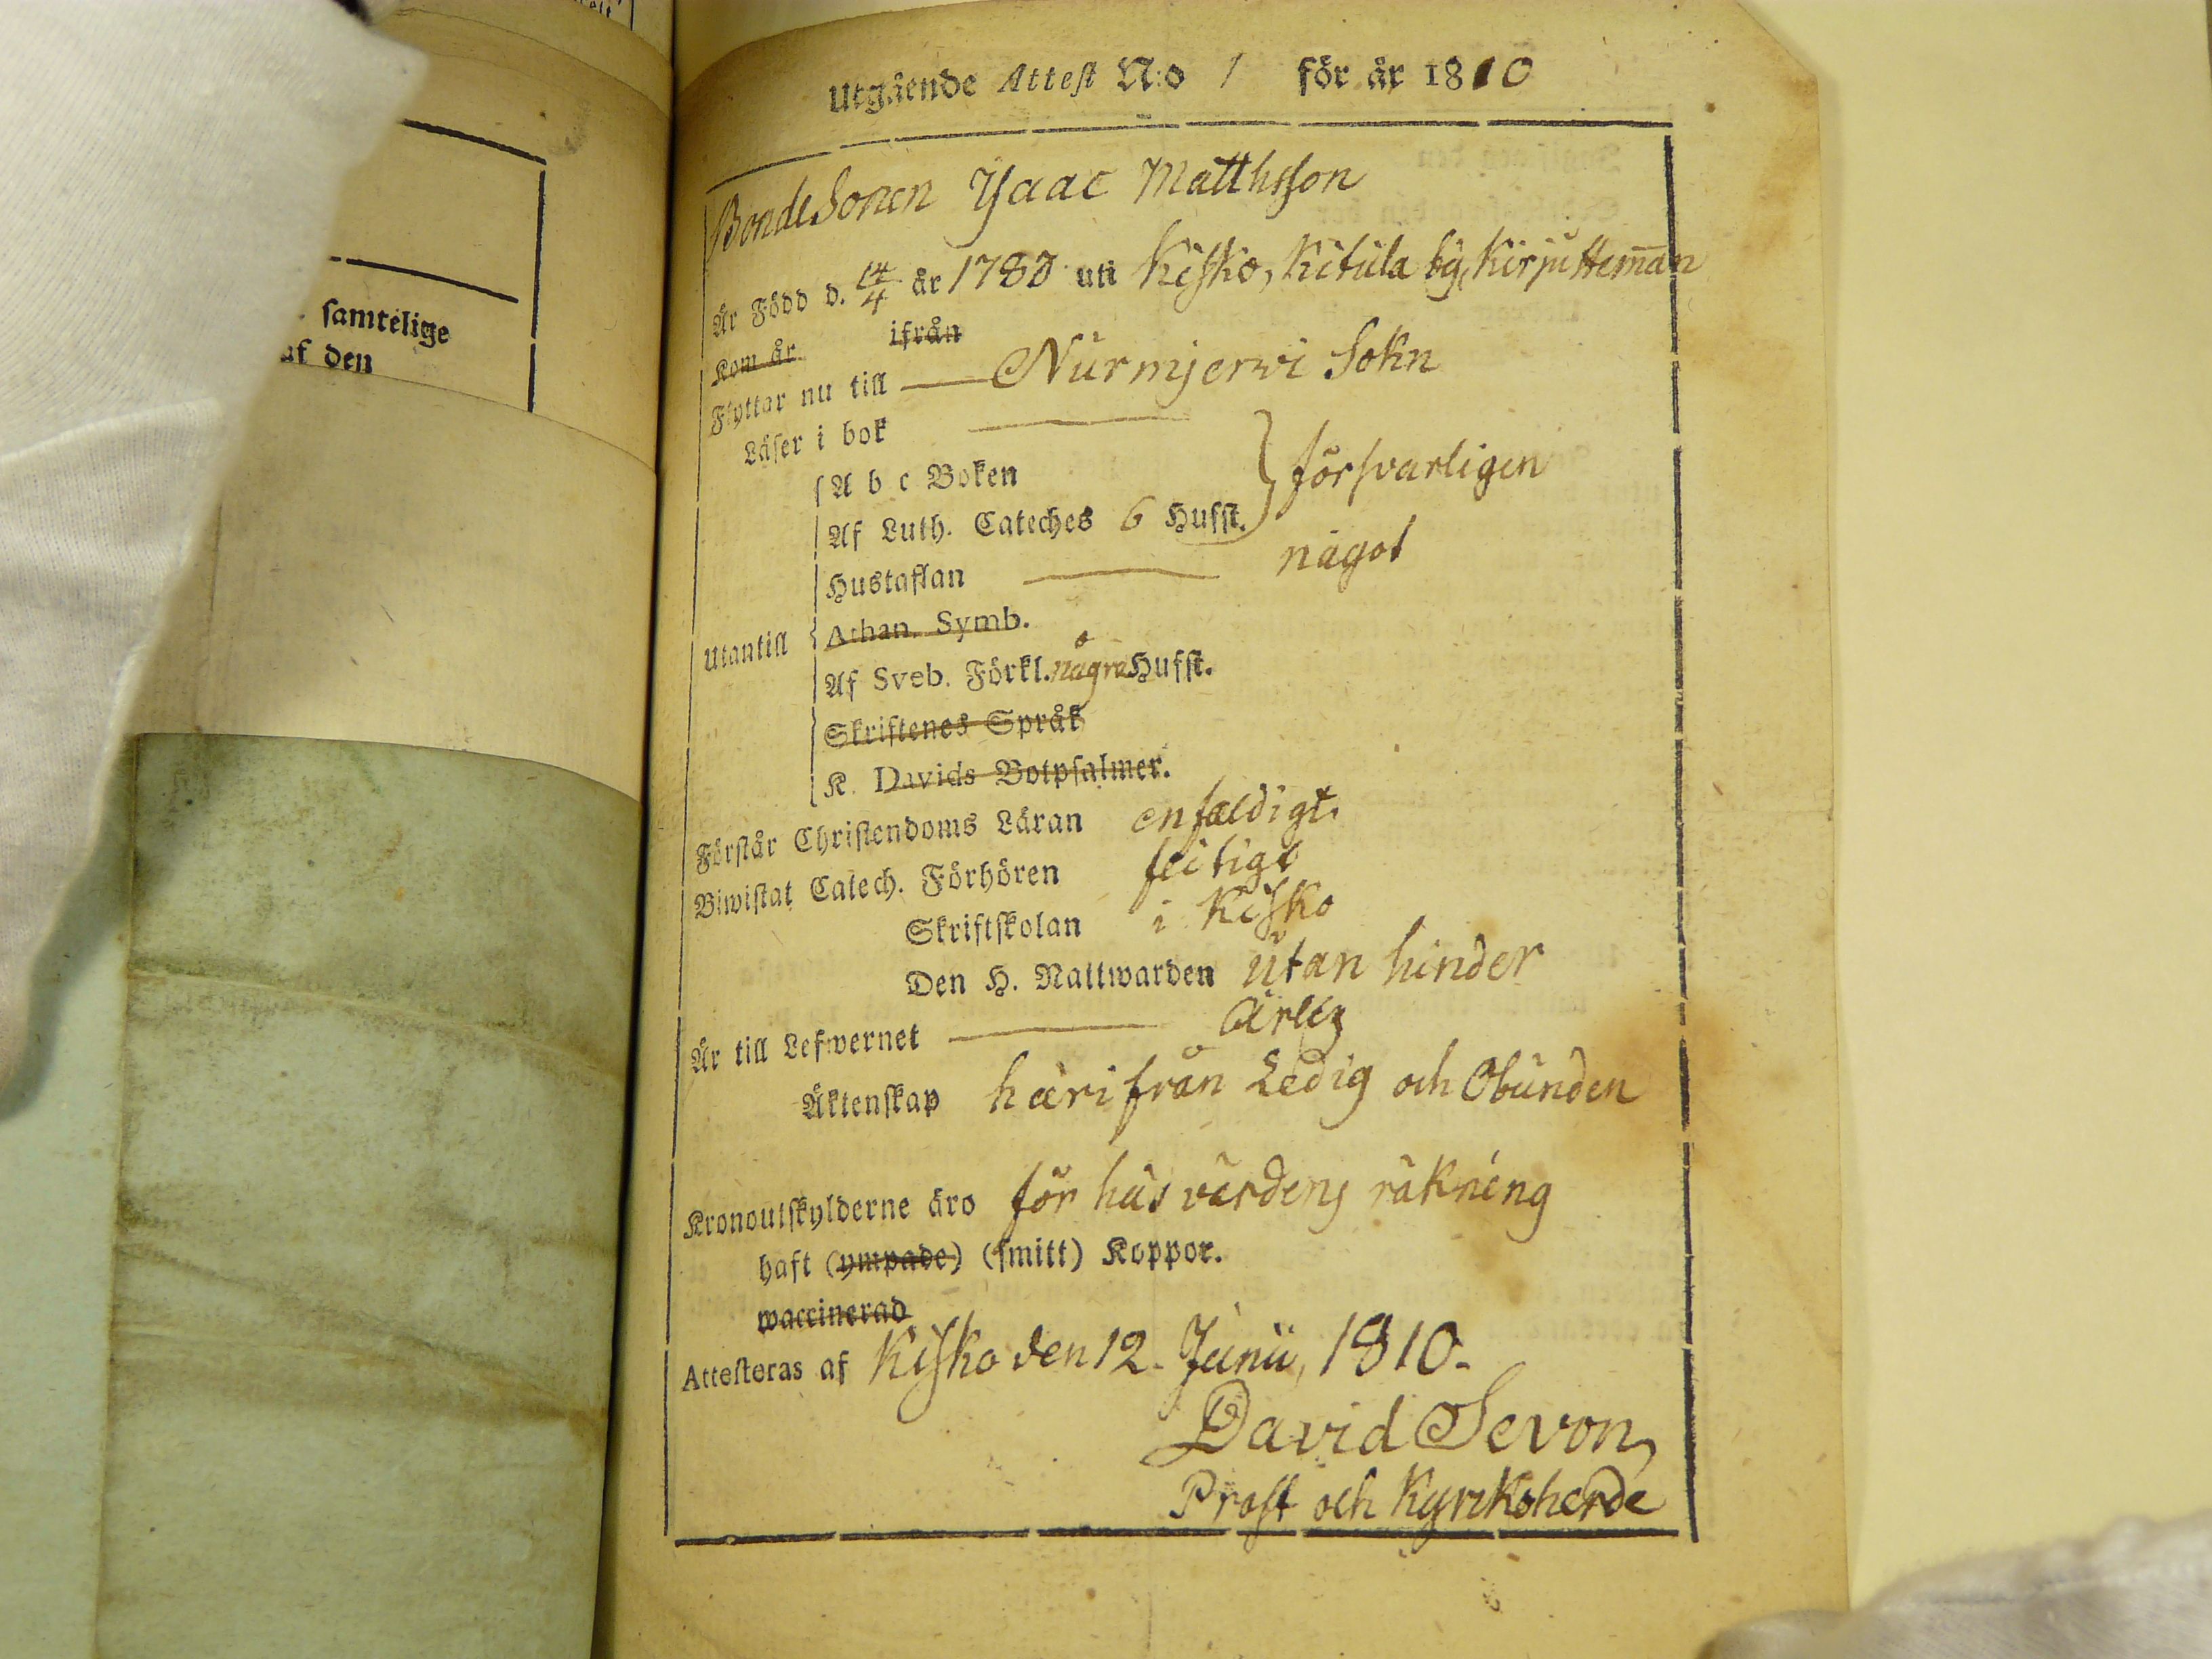 samtelige
af den
Utgående Attest N:o 1 för år 1810
BondeSonen Isaac Matthsson
Är Född d. 14/4 år 1783 uti Kisko, Kitula by, Kirju Heman
Kom år ifrån
Flyttar nu till Nurmjerwi Sokn
Läser i bok
A b c Boken
försvarligen
Af Luth. Cateches 6 Hufst.
Hustaflan något
Utantill
Athan. Symb.
Af Sveb. Förkl. några Hufst.
Skriftenes Språk
K. Davids Botpsalmer.
Förstår Christendoms Läran enfaldigt
Biwistat Catech. Förhören flitigt
Skriftskolan i Kisko
Den H. Nattwarden utan hinder
Är till Lefwernet ärlig
Äktenskap härifrån Ledig och Obunden
Kronoutskylderne äro för husvärdens räkning
haft (ympade) (smitt) Koppor.
waccinerad
Attesteras af Kisko den 12. Junii, 1810.
David Sevon,
Prost och Kyrckoherde